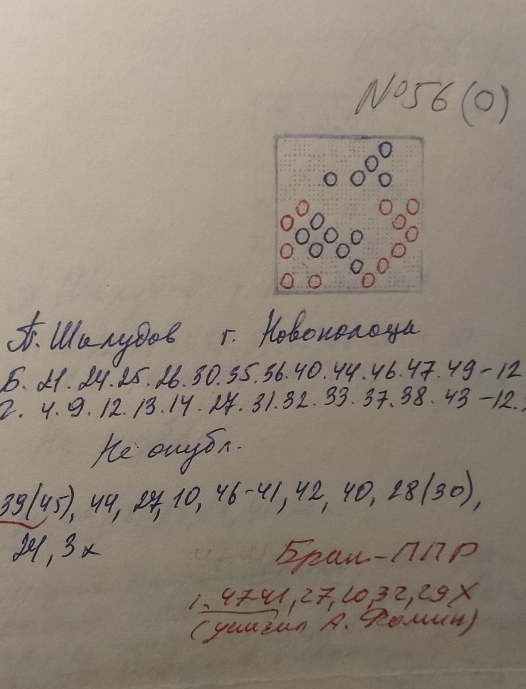 №56(0)
П. Шклудов г. Новополоцк
Б. 21. 24. 25. 26. 30. 35. 36. 40. 44. 46. 47. 49 - 12
4. 9. 12. 13. 14. 27. 31. 32. 33. 37. 38. 43 - 12.
Не опубл.
39(45), 44, 27, 10, 46-41, 42, 40, 28(30),
24, 3x
Брак - ППР
1. 47-41, 27, 10, 32, 29X
А. Фомин)